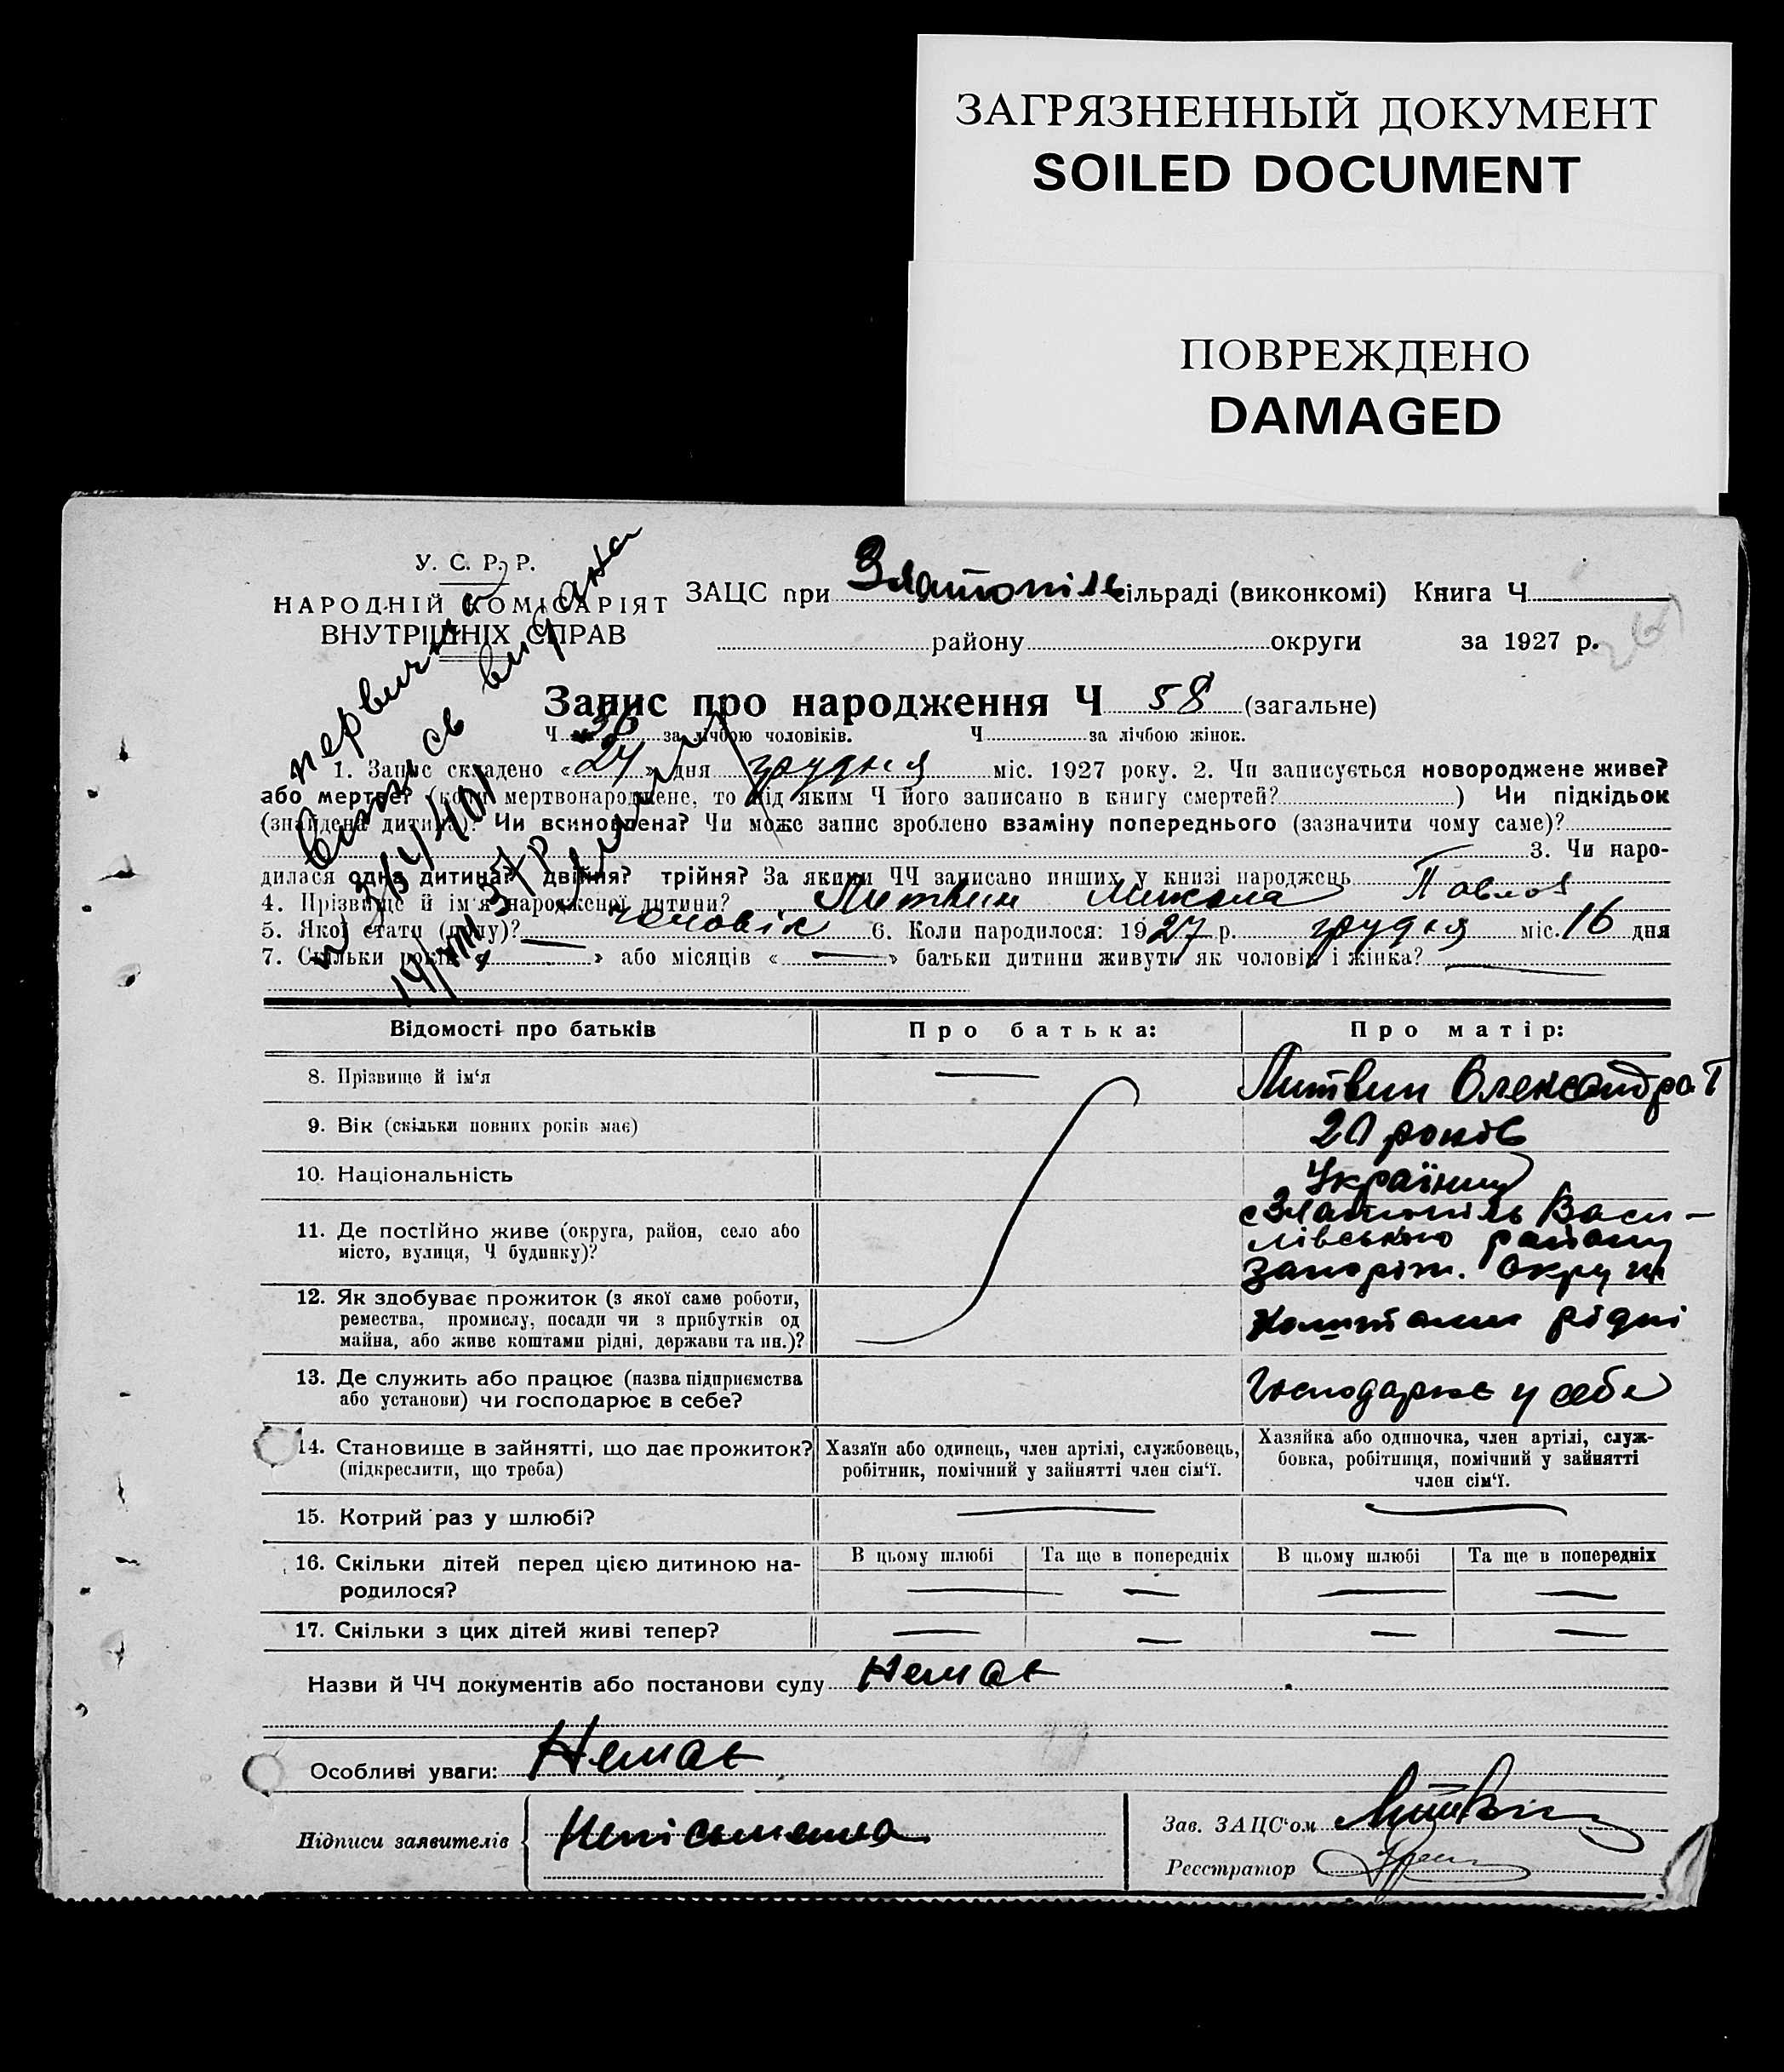 ЗАГРЯЗНЕННЫЙ ДОКУМЕНТ
SOILED DOCUMENT
ПОВРЕЖДЕНО
DAMAGED
У. С. Р. Р.
НАРОДНІЙ КОМІСАРІЯТ
ВНУТРІШНІХ СПРАВ
первична
Виписъ видана
19/VIII 37 р
ЗАЦС при Златопіль сільраді (виконкомі) Книга Ч.
району округи за 1927 р.
Запис про народження Ч 58 (загальне)
Ч за лічбою чоловіків. Ч за лічбою жінок.
1. Запис складено «24» дня грудня міс. 1927 року. 2. Чи записується новороджене живе?
або мертве? (коли мертвонароджене, то під яким Ч його записано в книгу смертей?) Чи підкідьок
(знайдена дитина)? Чи всиновлена? Чи може запис зроблено взаміну попереднього (зазначити чому саме)?
3. Чи наро-
дилася одна дитина? двійня? трійня? За якими ЧЧ записано инших у книзі народжень
4. Прізвище й ім'я народженої дитини? Литвин Микола Павлов
5. Якої статі (полу)? чоловік 6. Коли народилося: 1927 р. грудня міс. 16 дня
7. Скільки років « — » або місяців « — » батьки дитини живуть як чоловік і жінка? —
Відомості про батьків Про батька: Про матір:
8. Прізвище й ім'я — Литвин Олександра Т
9. Вік (скільки повних років має) 20 років
10. Національність Українц
11. Де постійно живе (округа, район, село або
місто, вулиця, Ч будинку)?
с Златопіль Васи-
лівського району
Запоріж. Округи
12. Як здобуває прожиток (з якої саме роботи,
ремества, промислу, посади чи з прибутків од
майна, або живе коштами рідні, держави та ин.)?
Коштами рідні
13. Де служить або працює (назва підприємства
або установи) чи господарює в себе?
Господарює у себе
14. Становище в зайнятті, що дає прожиток?
(підкреслити, що треба)
Хазяїн або одинець, член артілі, службовець,
робітник, помічний у зайнятті член сім'ї.
Хазяйка або одиночка, член артілі, служ-
бовка, робітниця, помічний у зайнятті
член сім'ї.
15. Котрий раз у шлюбі? — —
16. Скільки дітей перед цією дитиною на-
родилося?
В цьому шлюбі Та ще в попередніх В цьому шлюбі Та ще в попередніх
— — — —
17. Скільки з цих дітей живі тепер? — — — —
Назви й ЧЧ документів або постанови суду Немає
Особливі уваги: Немає
Підписи заявителів Непісьменна
Зав. ЗАЦС'ом
Реєстратор